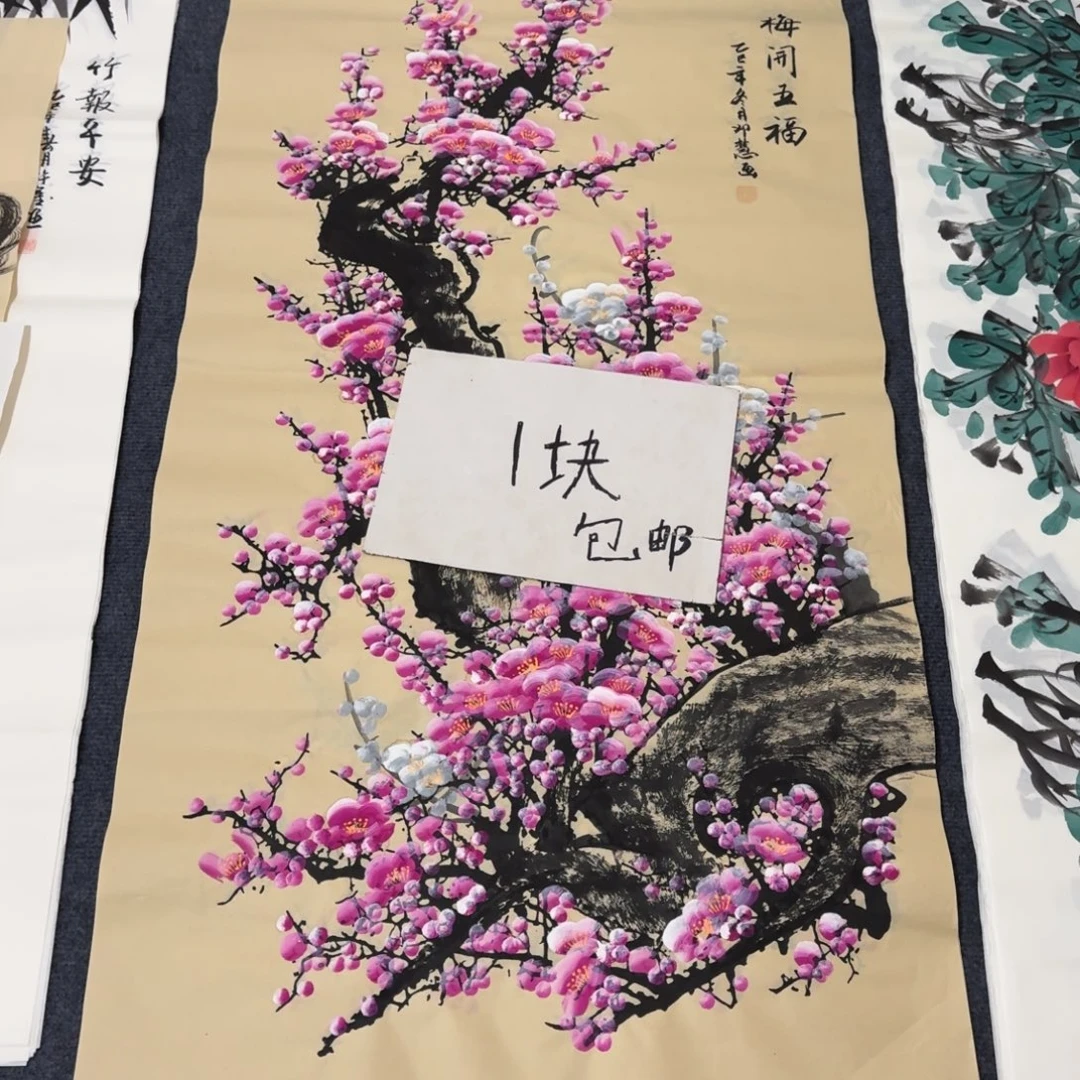 梅開五福
乙巳年冬月印慧画
竹報平安
1块
包邮